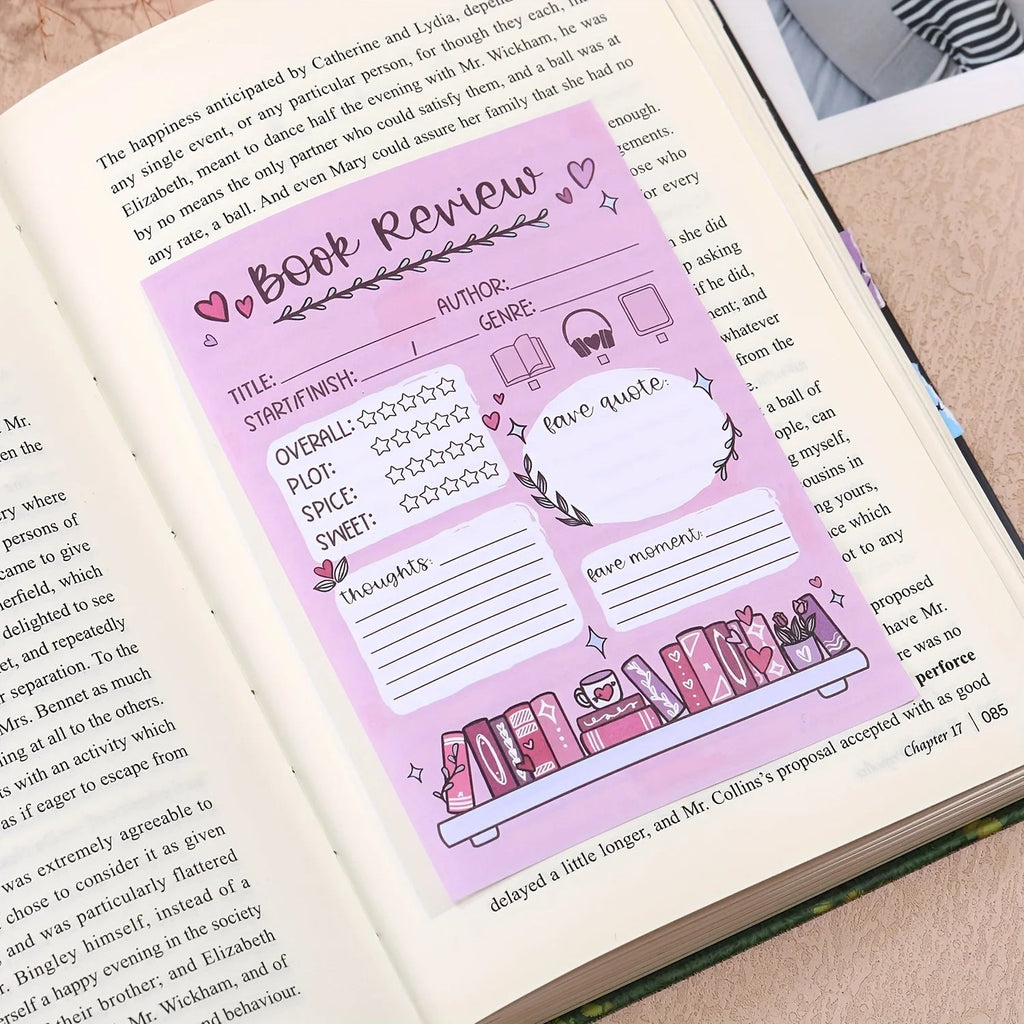 Mr.
en the
ry where
persons of
came to give
erfield, which
delighted to see
et, and repeatedly
r separation. To the
Mrs. Bennet as much
ning at all to the others.
ts with an activity which
as if eager to escape from
was extremely agreeable to
chose to consider it as given
and was particularly flattered
r. Bingley himself, instead of a
erself a happy evening in the society
their brother; and Elizabeth
Mr. Wickham, and of
nd behaviour.
The happiness anticipated by Catherine and Lydia, depen
any single event, or any particular person, for though they each,
Elizabeth, meant to dance half the evening with Mr. Wickham, he was
by no means the only partner who could satisfy them, and a ball was at
any rate, a ball. And even Mary could assure her family that she had no
enough.
gements.
ose who
or every
she did
p asking
if he did,
ment; and
whatever
from the
e.
a ball of
ople, can
g myself,
cousins in
ng yours,
ce which
ot to any
proposed
have Mr.
re was no
perforce
delayed a little longer, and Mr. Collins's proposal accepted with as good
Chapter 17 | 085
Book Review
TITLE:
AUTHOR:
START/FINISH: /
GENRE:
OVERALL:
PLOT:
SPICE:
SWEET:
fave quote:
thoughts:
fave moment: